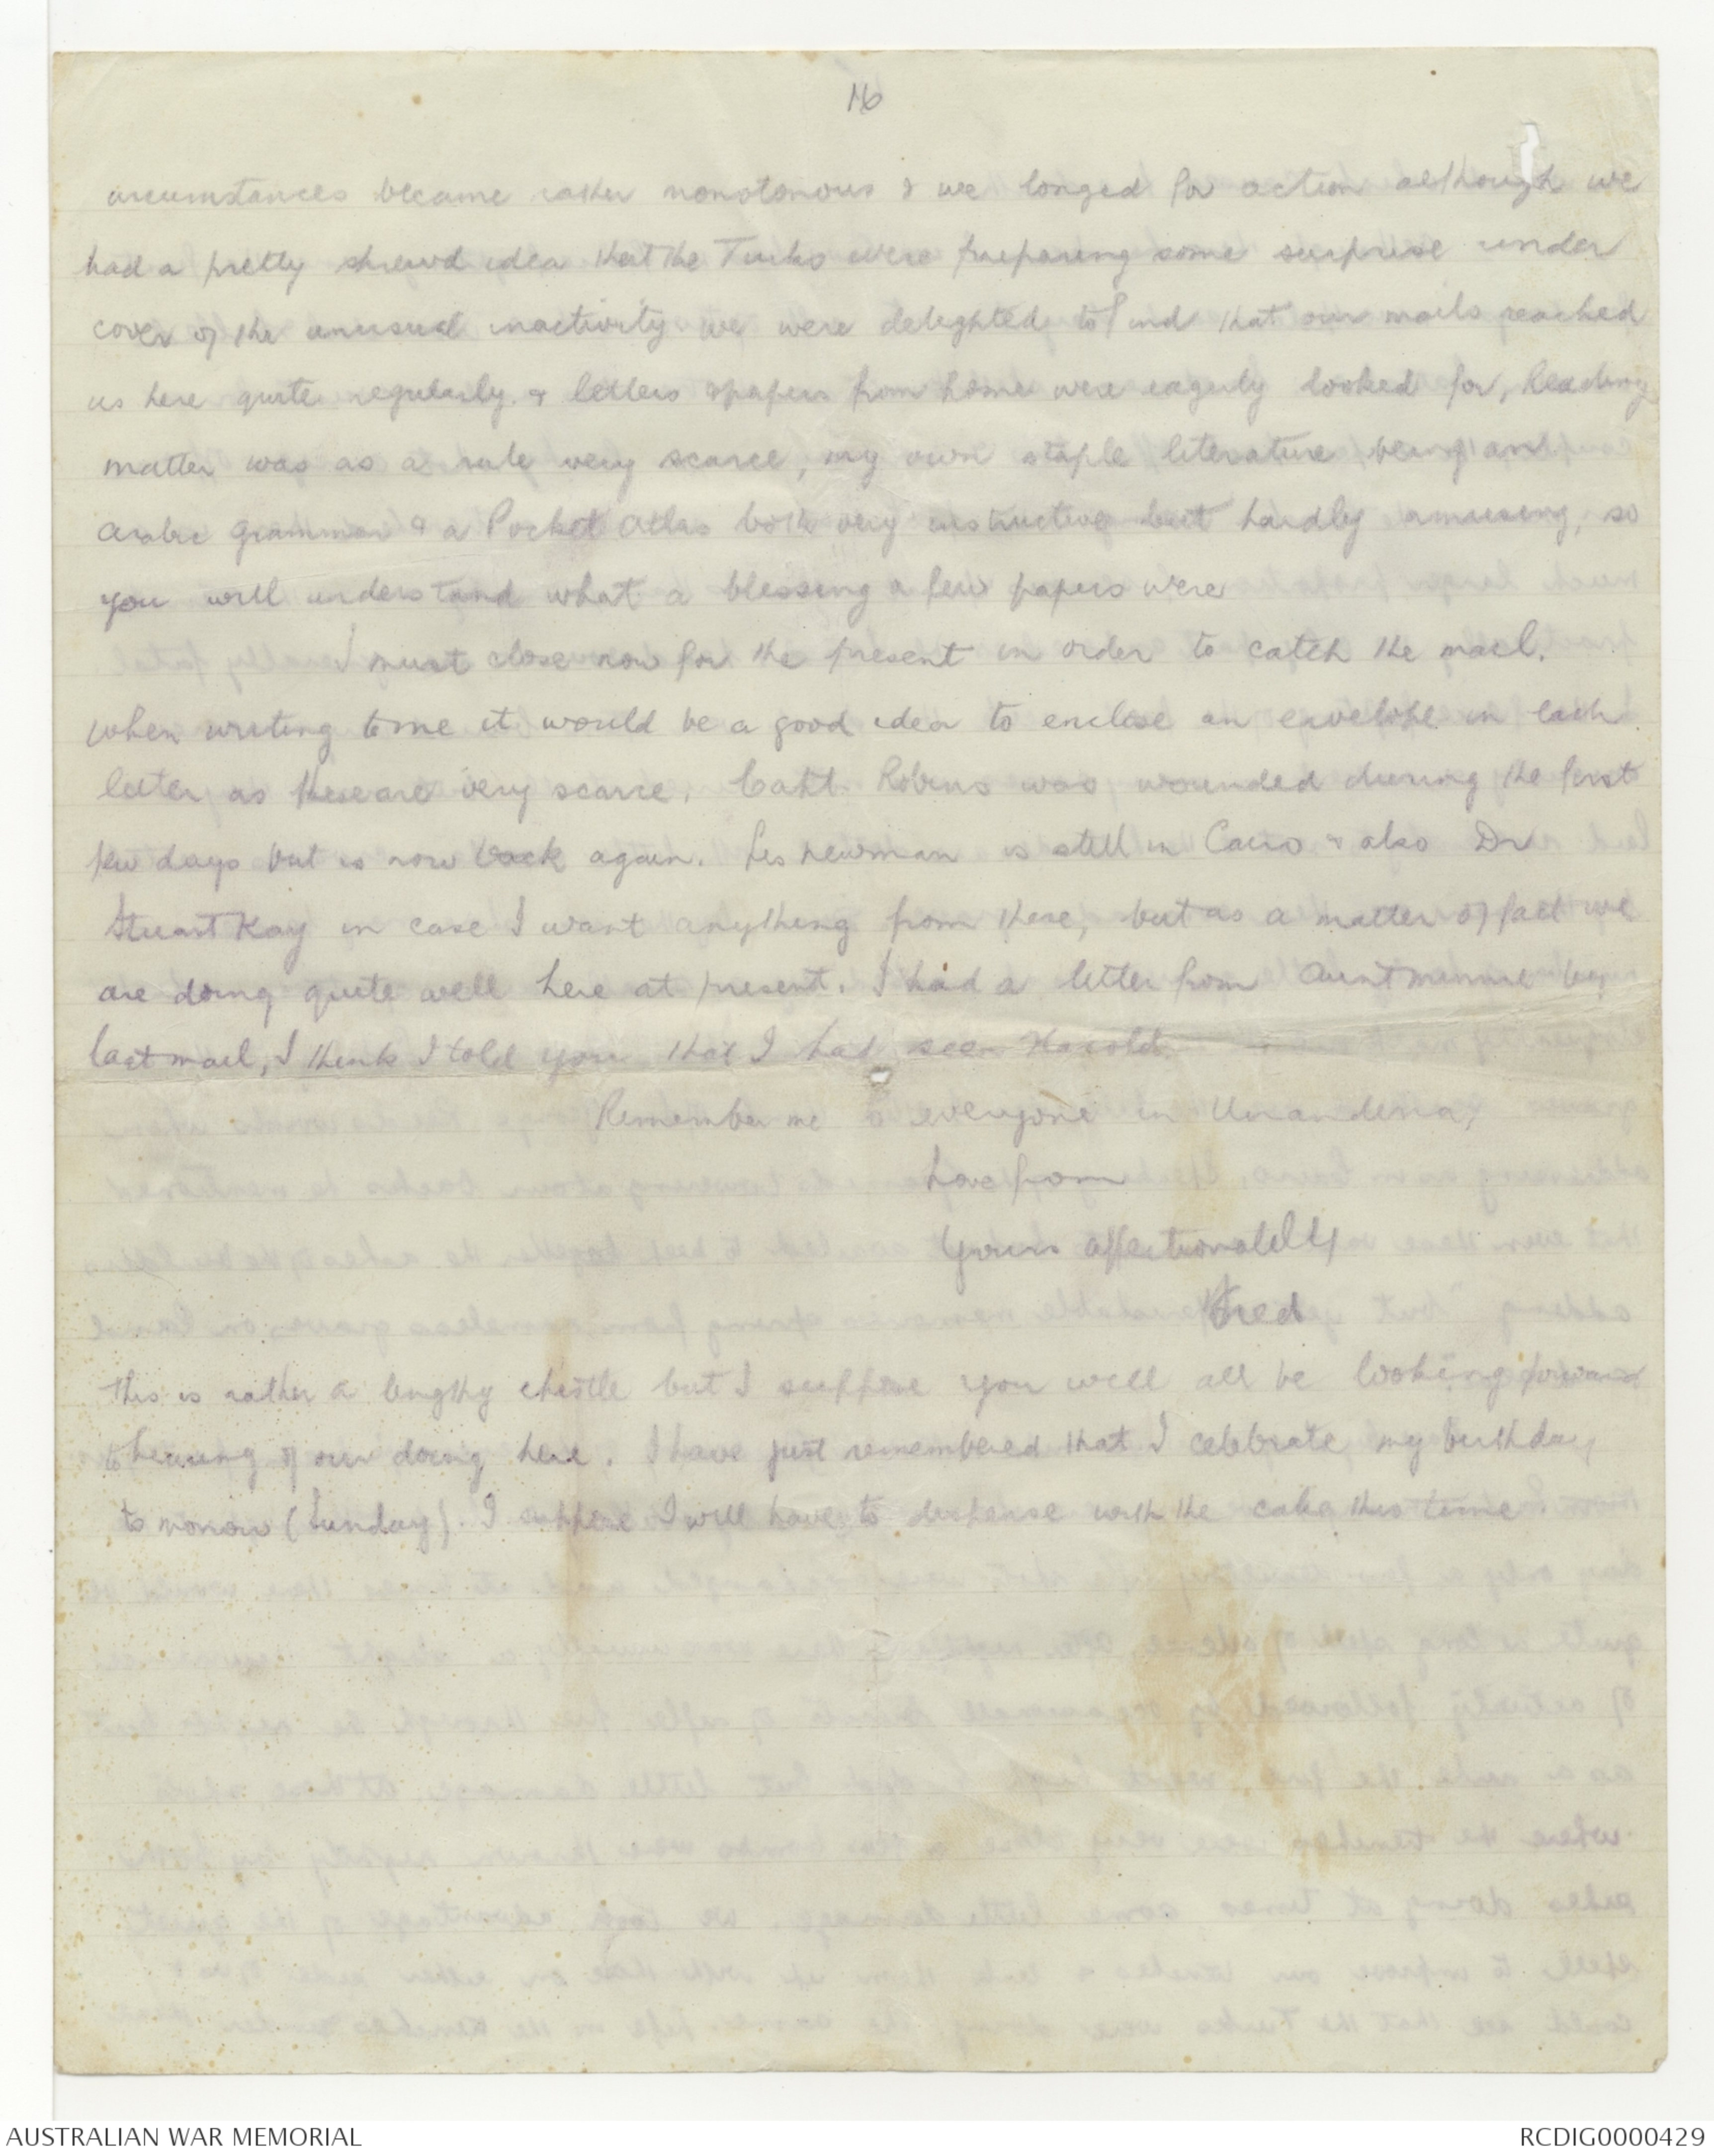 16
circumstances became rather monotonous & we longed for action although we
had a pretty shrewd idea that the Turks were preparing some surprise under
cover of the unusual inactivity we were delighted to find that our mails reached
us here quite regularly & letters & papers from home were eagerly looked for, Reading
matter was as a rule very scarce, my own staple literature being an
Arabic grammar & a Pocket Atlas both very instructive but hardly amusing, so
you will understand what a blessing a few papers were
I must close now for the present in order to catch the mail.
When writing to me it would be a good idea to enclose an envelope in each
letter as these are very scarce. Capt. Robins was wounded during the first
few days but is now back again. Les Newman is still in Cairo & also Dr
Stuart Kay in case I want anything from there, but as a matter of fact we
are doing quite well here at present. I had a letter from Aunt Minnie by
last mail, I think I told you that I had seen Harold.
Remember me to everyone in Unanderra,
Love from
Yours affectionately
Fred
This is rather a lengthy epistle but I suppose you will all be looking forward
to hearing of our doing here. I have just remembered that I celebrate my birthday
to morrow (Sunday). I suppose I will have to dispense with the cake this time.
AUSTRALIAN WAR MEMORIAL
RCDIG0000429